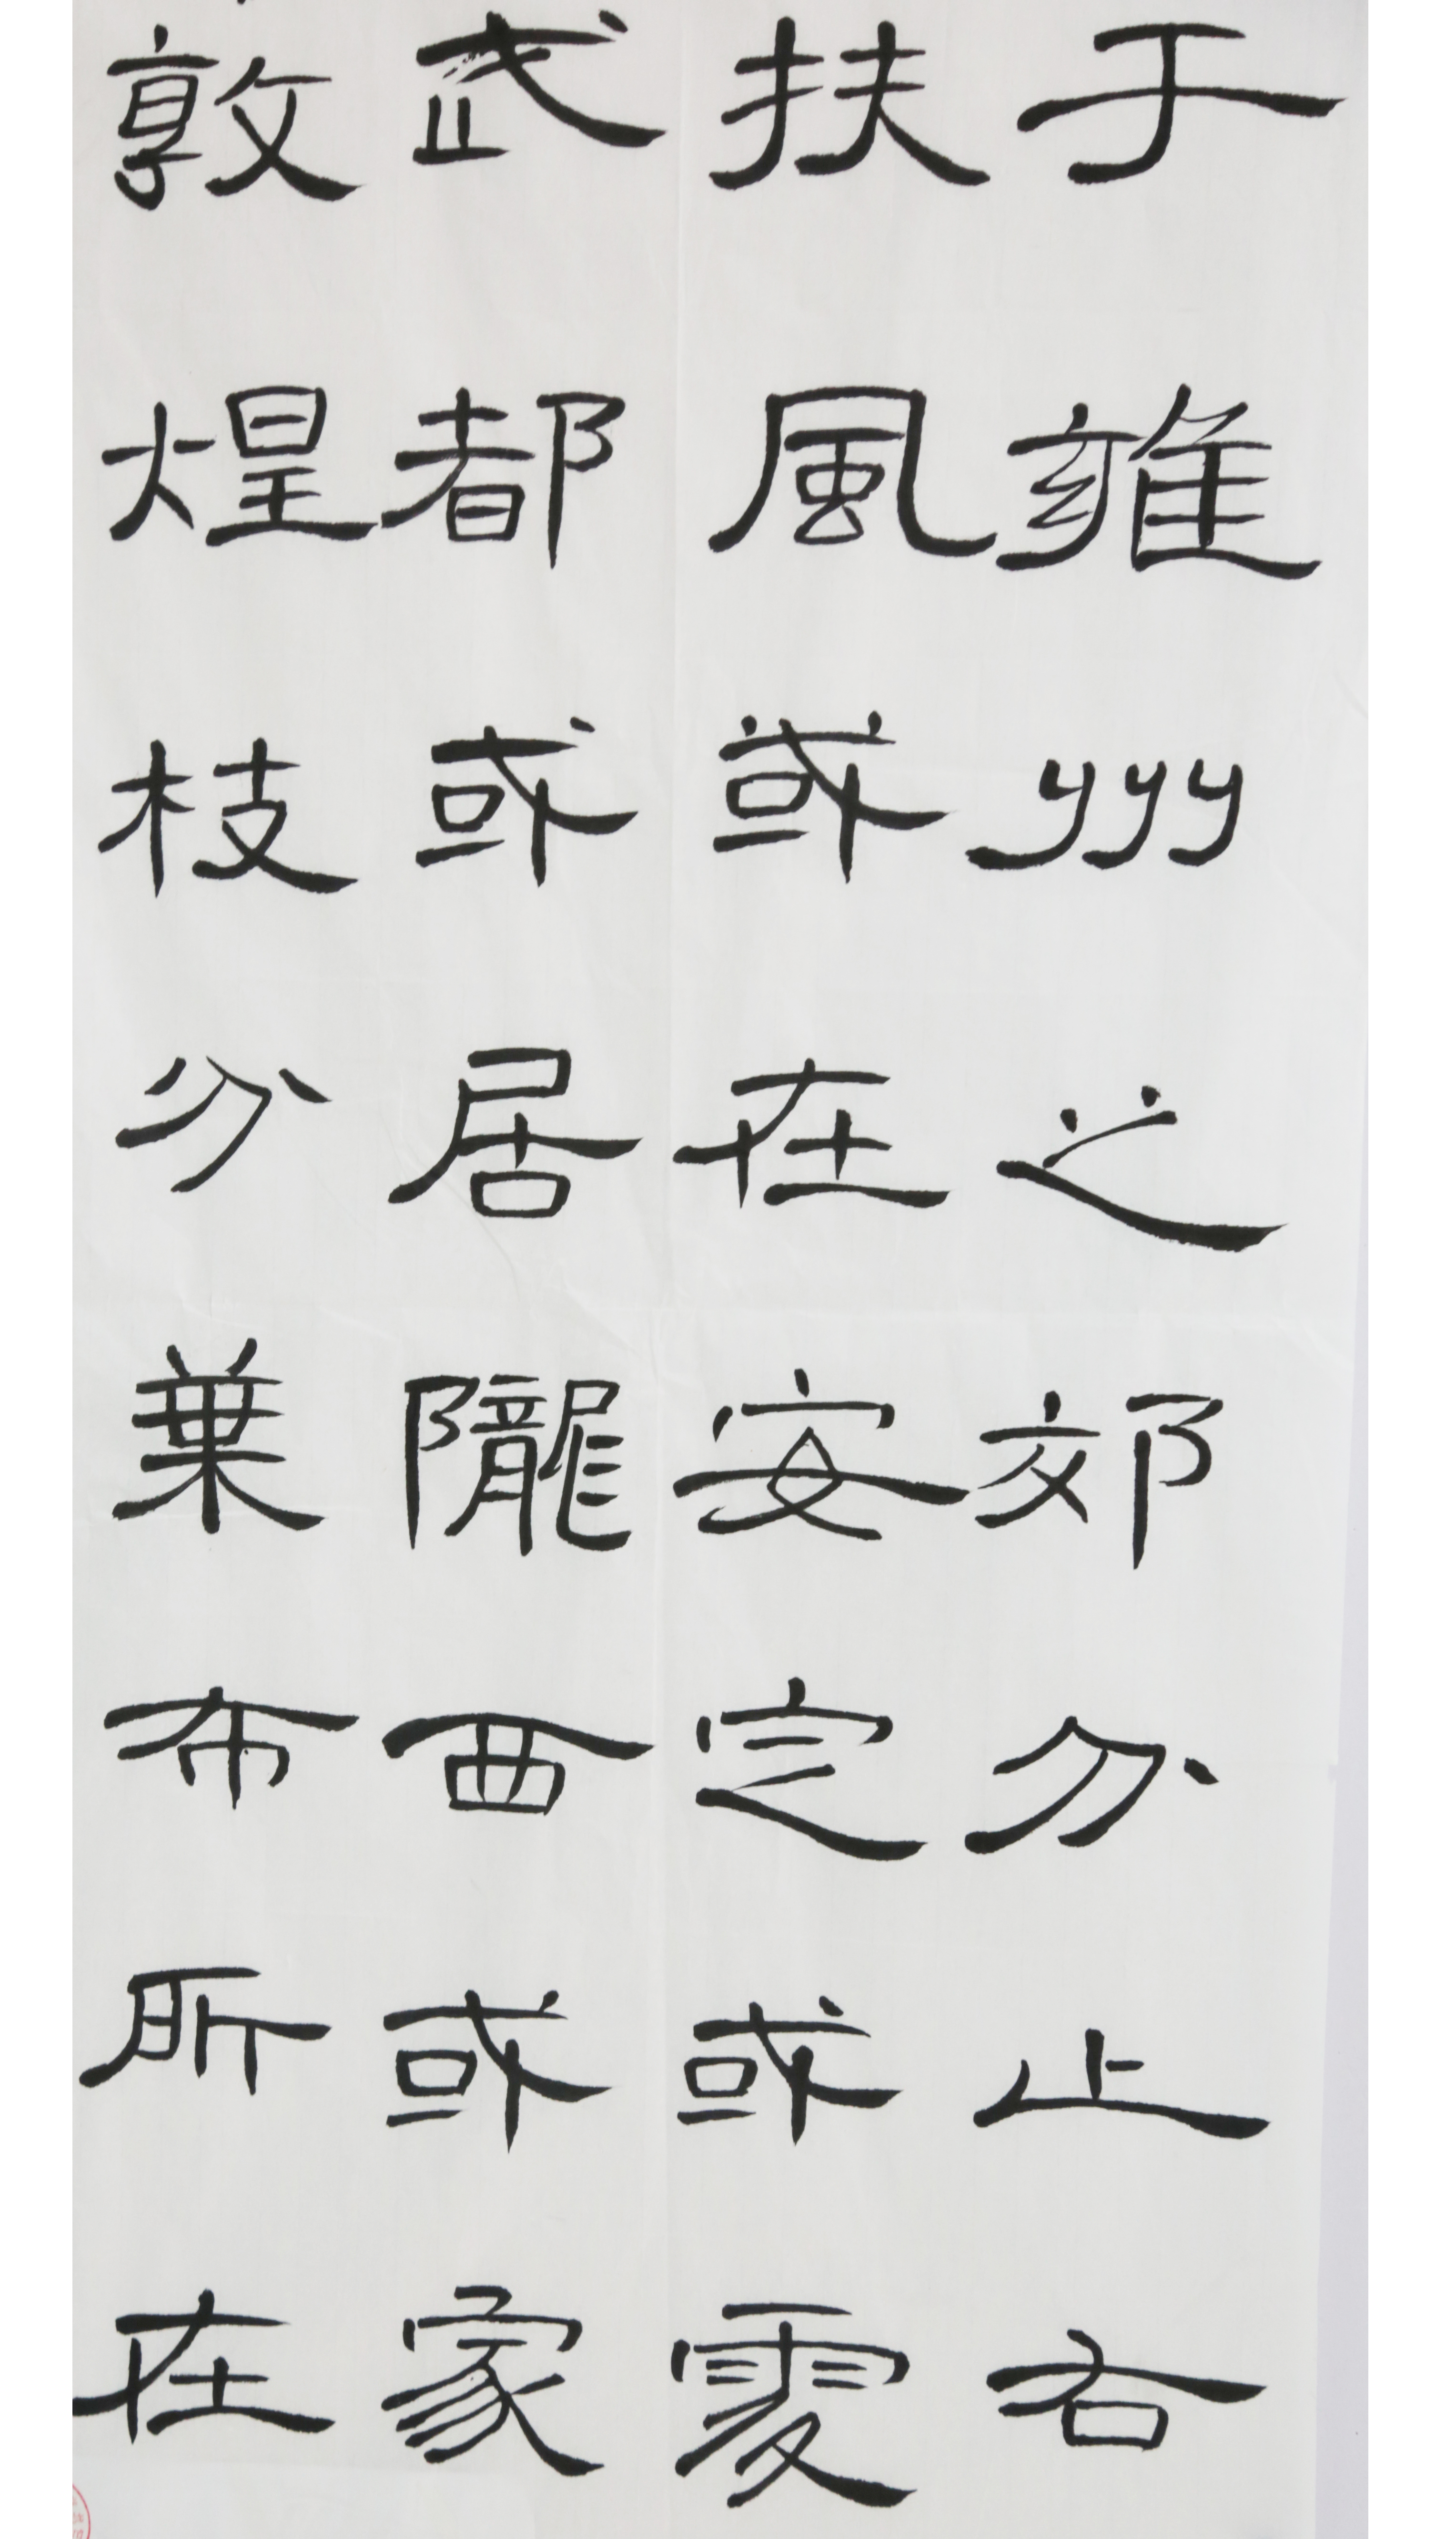 于雍州之郊分止右
扶風或在安定或處
武都或居隴西或家
敦煌枝分葉布所在